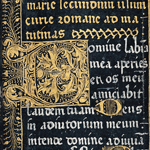 marie secundum usum
curie romane ad ma
tutinas
Domine labia
mea aperies
et os meum
annunciabit
laudem tuam Deus
in adiutorium meum
intende domine ad iuva